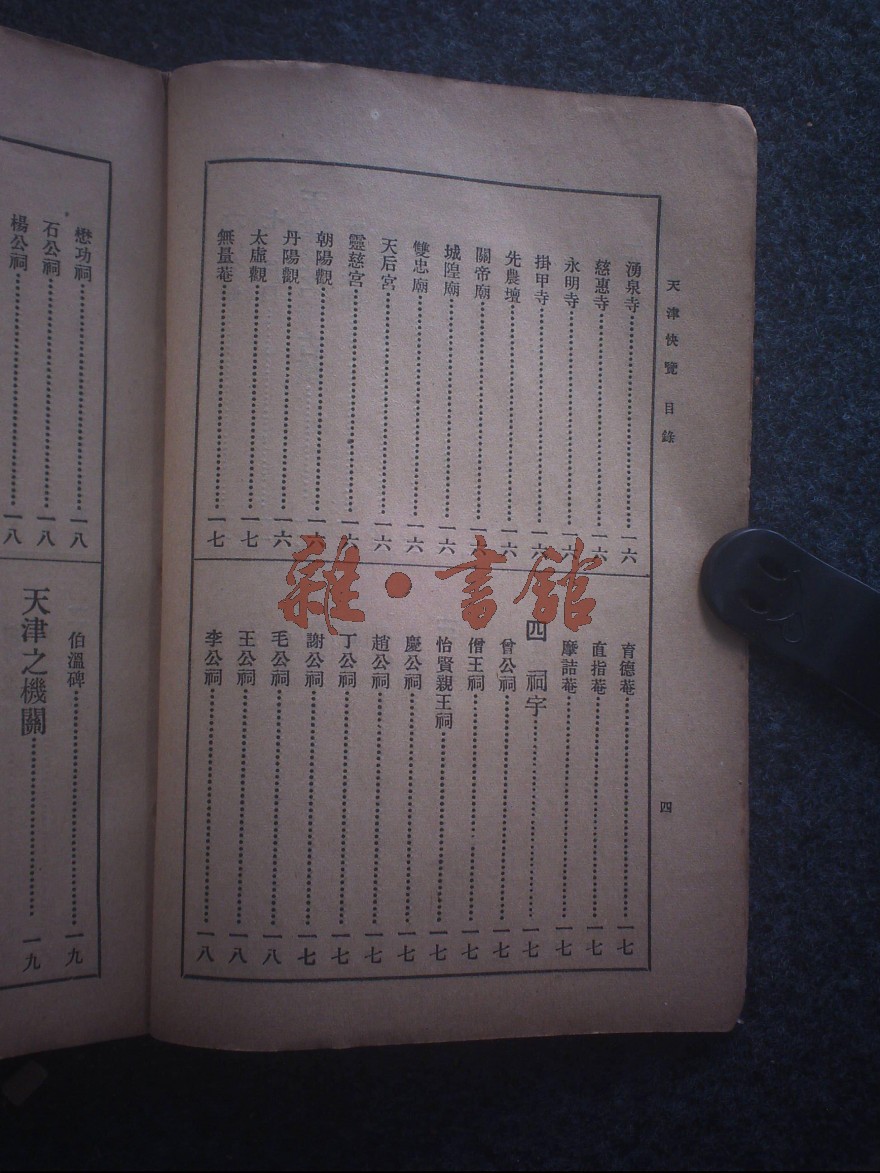 天津快覽 目錄
四
湧泉寺……一六
慈惠寺……一六
永明寺……一六
掛甲寺……一六
先農壇……一六
關帝廟……一六
城隍廟……一六
雙忠廟……一六
天后宮……一六
靈慈宮……一六
朝陽觀……一六
丹陽觀……一六
太虛觀……一七
無量菴……一七
育德菴……一七
直指菴……一七
摩詰菴……一七
四 祠宇……一七
曾公祠……一七
僧王祠……一七
怡賢親王祠……一七
慶公祠……一七
趙公祠……一七
丁公祠……一七
謝公祠……一七
毛公祠……一八
王公祠……一八
李公祠……一八
懋功祠……一八
石公祠……一八
楊公祠……一八
伯溫碑……一九
天津之機關……一九
雜·書館